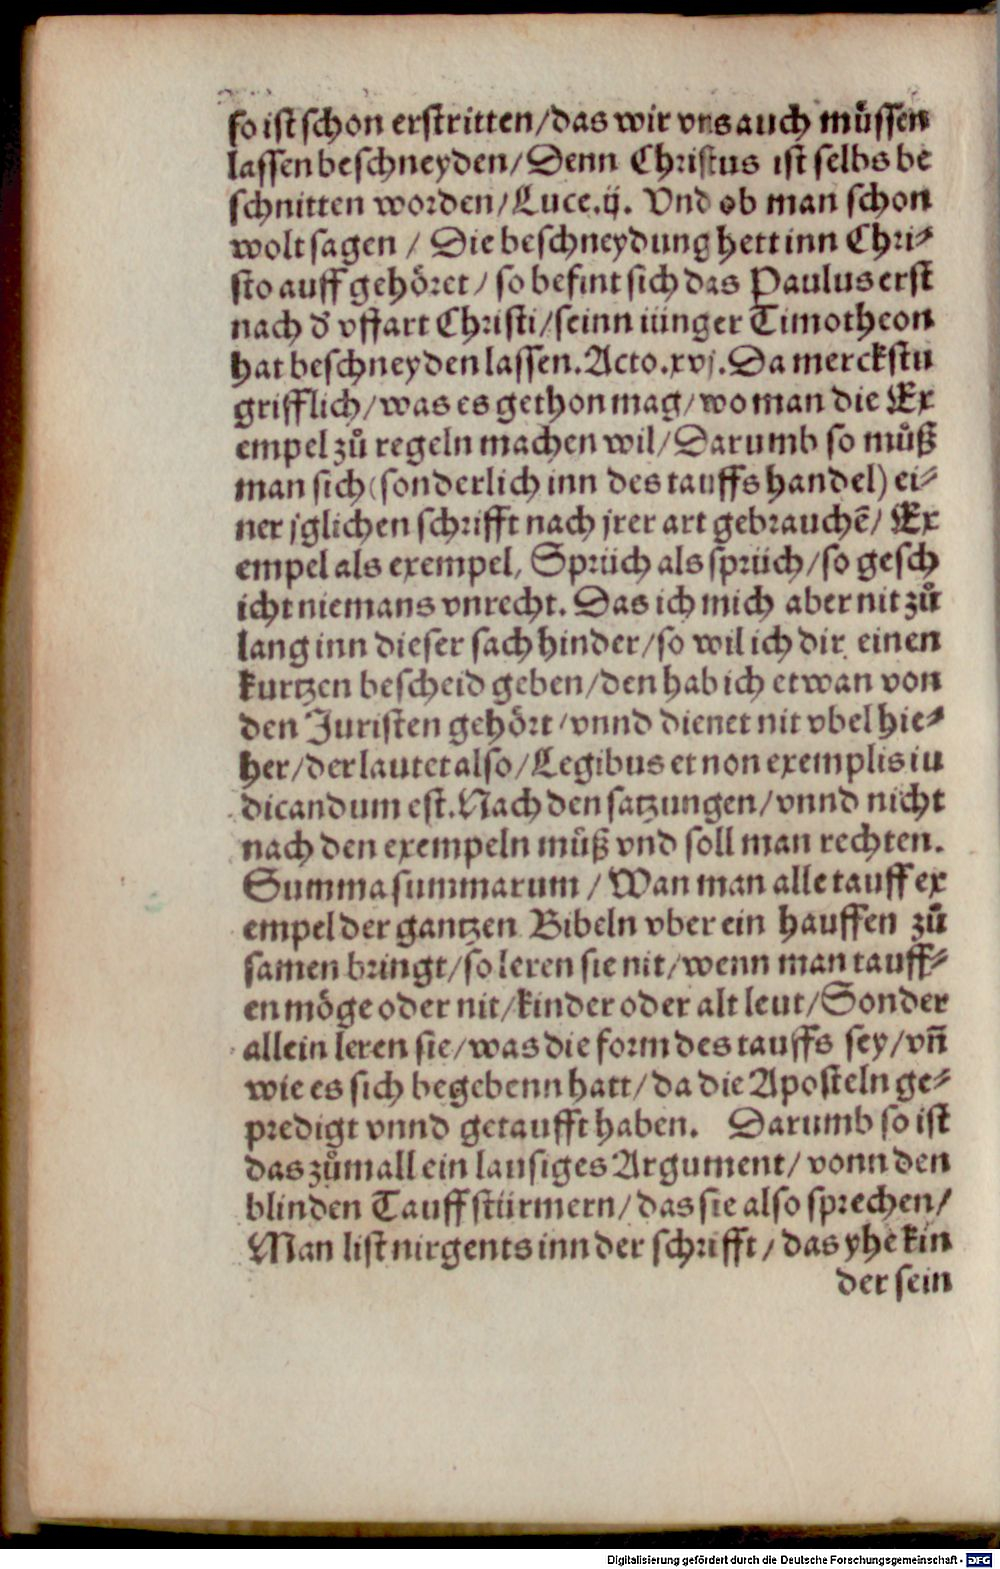 so ist schon erstritten/das wir vns auch muͤssen
lassen beschneyden/Denn Christus ist selbs be
schnitten worden/Luce.ij. Vnd ob man schon
wolt sagen / Die beschneydung hett inn Chri-
sto auff gehoͤret/ so befint sich das Paulus erst
nach d' vffart Christi/seinn iünger Timotheon
hat beschneyden lassen.Acto.xvj.Da merckstu
grifflich/was es gethon mag/wo man die Ex
empel zuͦ regeln machen wil/Darumb so muͦß
man sich(sonderlich inn des tauffs handel) ei-
ner jglichen schrifft nach jrer art gebrauchē/ Ex
empel als exempel, Sprüch als sprüch/so gesch
icht niemans vnrecht. Das ich mich aber nit zuͦ
lang inn dieser sach hinder/so wil ich dir einen
kurtzen bescheid geben/den hab ich etwan von
den Juristen gehoͤrt/vnnd dienet nit vbel hie-
her/der lautet also/Legibus et non exemplis iu
dicandum est.Nach den satzungen/vnnd nicht
nach den exempeln muͦß vnd soll man rechten.
Summa summarum / Wan man alle tauff ex
empel der gantzen Bibeln vber ein hauffen zuͦ
samen bringt/so leren sie nit/wenn man tauff-
en moͤge oder nit/kinder oder alt leut/Sonder
allein leren sie/was die form des tauffs sey/vñ
wie es sich begebenn hatt/da die Aposteln ge-
predigt vnnd getaufft haben. Darumb so ist
das zuͦmall ein lausiges Argument/vonn den
blinden Tauff stürmern/das sie also sprechen/
Man list nirgents inn der schrifft/das yhe kin
der sein
Digitalisierung gefördert durch die Deutsche Forschungsgemeinschaft - DFG